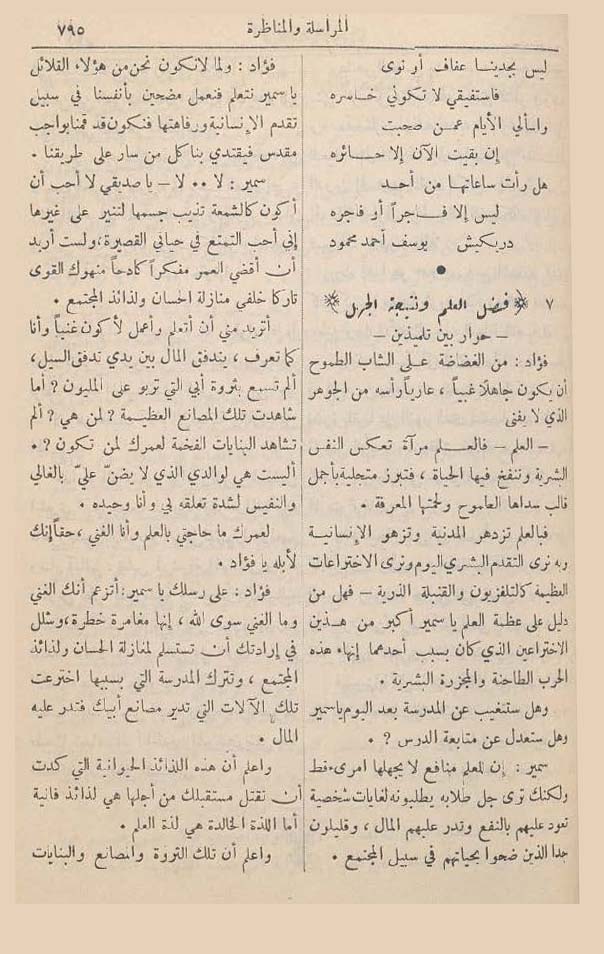 المراسلة والمناظرة
٧٩٥
ليس يجدينا عفاف أو نوى
فاستفيقي لا تكوني خاسره
واسألي الأيام عمن صحبت
إن بقيت الآن إلا حائره
هل رأت ساعاتها من أحد
ليس إلا فاجراً أو فاجره
دريكيش يوسف أحمد محمود
٧ ﴿ فضل العلم ونتيجة الجهل ﴾
— حوار بين تلميذين —
فؤاد : من الغضاضة على الشاب الطموح
أن يكون جاهلاً غبياً ، عارياً رأسه من الجوهر
الذي لا يفنى
— العلم — فالعلم مرآة تعكس النفس
البشرية وتنفخ فيها الحياة ، فتبرز متجلية بأجمل
قالب سداها الطموح ولحمتها المعرفة .
فبالعلم تزدهر المدنية وتزهو الإنسانية
وبه نرى التقدم البشري اليوم ونرى الاختراعات
العظيمة كالتلفزيون والقنبلة الذرية — فهل من
دليل على عظمة العلم يا سمير أكبر من هذين
الاختراعين الذي كان بسبب أحدهما إنهاء هذه
الحرب الطاحنة والمجزرة البشرية .
وهل ستغيب عن المدرسة بعد اليوم يا سمير
وهل ستعدل عن متابعة الدرس ? .
سمير : إن للعلم منافع لا يجهلها امرىء قط
ولكنك ترى جل طلابه يطلبونه لغايات شخصية
تعود عليهم بالنفع وتدر عليهم المال ، وقليلون
جدا الذين ضحوا بحياتهم في سبيل المجتمع .
فؤاد : ولما لا نكون نحن من هؤلاء القلائل
يا سمير نتعلم فنعمل مضحين بأنفسنا في سبيل
تقدم الإنسانية ورفاهتها فنكون قد قمنا بواجب
مقدس فيقتدي بنا كل من سار على طريقنا .
سمير : لا .. لا — يا صديقي لا أحب أن
أكون كالشمعة تذيب جسمها لتنير على غيرها
إني أحب التمتع في حياتي القصيرة، ولست أريد
أن أقضي العمر مفكراً كادحاً منهوك القوى
تاركا خلفي منازلة الحسان ولذائذ المجتمع .
أتريد مني أن أتعلم وأعمل لأكون غنياً وأنا
كما تعرف ، يتدفق المال بين يدي تدفق السيل،
ألم تسمع بثروة أبي التي تربو على المليون ? أما
شاهدت تلك المصانع العظيمة ? لمن هي ? ألم
تشاهد البنايات الفخمة لعمرك لمن تكون ? .
أليست هي لوالدي الذي لا يضنّ عليّ بالغالي
والنفيس لشدة تعلقه بي وأنا وحيده .
لعمرك ما حاجتي بالعلم وأنا الغني ، حقاً إنك
لأبله يا فؤاد .
فؤاد : على رسلك يا سمير: أتزعم أنك الغني
وما الغني سوى الله ، إنها مغامرة خطرة، وشلل
في إرادتك أن تستسلم لمغازلة الحسان ولذائذ
المجتمع ، وتترك المدرسة التي بسببها اخترعت
تلك الآلات التي تدير مصانع أبيك فتدر عليه
المال .
واعلم أن هذه اللذائذ الحيوانية التي كدت
أن تقتل مستقبلك من أجلها هي لذائذ فانية
أما اللذة الخالدة هي لذة العلم .
واعلم أن تلك الثروة والمصانع والبنايات